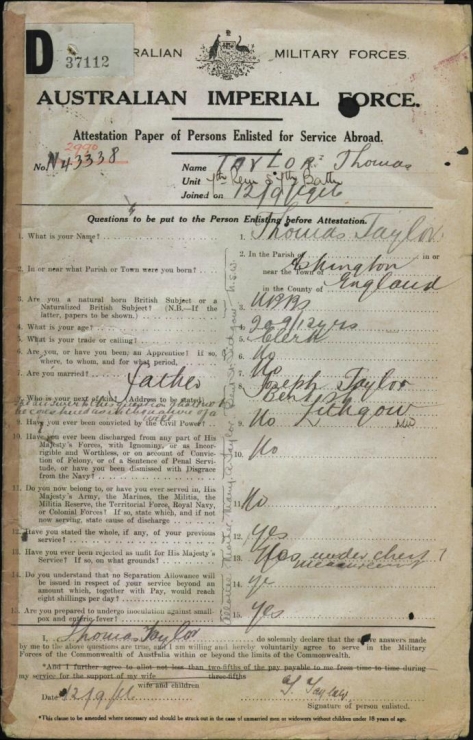 D 37112
AUSTRALIAN MILITARY FORCES.
AUSTRALIAN IMPERIAL FORCE.
Attestation Paper of Persons Enlisted for Service Abroad.
2996
No. N43338
Name TAYLOR Thomas
Unit
Joined on 12/9/1916
Questions to be put to the Person Enlisting before Attestation.
1. What is your Name? 1. Thomas Taylor
2. In or near what Parish or Town were you born? 2. In the Parish of in or
near the Town of Ashington
in the County of England
3. Are you a natural born British Subject or a
Naturalized British Subject? (N.B.—If the
latter, papers to be shown.) 3. NBBS
4. What is your age? 4. 20 9/12 yrs
5. What is your trade or calling? 5. Clerk
6. Are you, or have you been, an Apprentice? If so,
where, to whom, and for what period. 6. No
7. Are you married? 7. No
8. Who is your next of kin? (Address to be stated) father 8. Joseph Taylor
Lithgow
NSW
9. Have you ever been convicted by the Civil Power? 9. No
10. Have you ever been discharged from any part of His
Majesty's Forces, with Ignominy, or as Incor-
rigible and Worthless, or on account of Convic-
tion of Felony, or of a Sentence of Penal Servi-
tude, or have you been dismissed with Disgrace
from the Navy? 10. No
11. Do you now belong to, or have you ever served in, His
Majesty's Army, the Marines, the Militia, the
Militia Reserve, the Territorial Force, Royal Navy,
or Colonial Forces? If so, state which, and if not
now serving, state cause of discharge 11. No
12. Have you stated the whole, if any, of your previous
service? 12. Yes
13. Have you ever been rejected as unfit for His Majesty's
Service? If so, on what grounds? 13. Yes under chest
measurement
14. Do you understand that no Separation Allowance will
be issued in respect of your service beyond an
amount which, together with Pay, would reach
eight shillings per day? 14. ye
15. Are you prepared to undergo inoculation against small-
pox and enteric fever? 15. Yes
I, Thomas Taylor do solemnly declare that the above answers made
by me to the above questions are true, and I am willing and hereby voluntarily agree to serve in the Military
Forces of the Commonwealth of Australia within or beyond the limits of the Commonwealth.
*And I further agree to allot not less than two-fifths of the pay payable to me from time to time during
my service for the support of my wife three-fifths
wife and children
Date 12/9/16 T. Taylor
Signature of person enlisted.
*This clause to be amended where necessary and should be struck out in the case of unmarried men or widowers without children under 18 years of age.